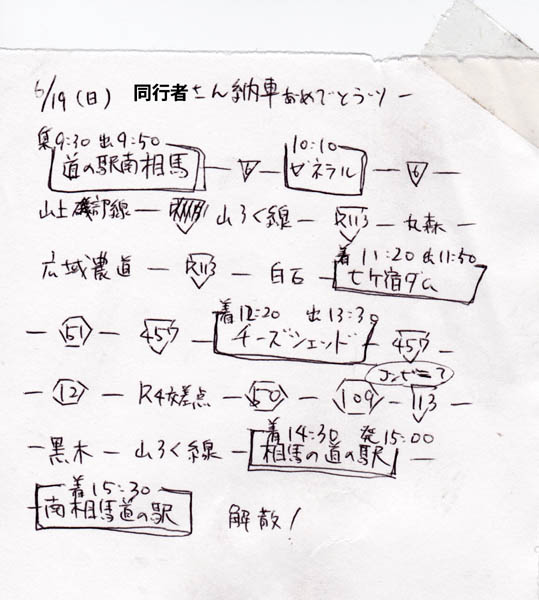 6/19(日) 同行者さん納車おめでとうツー
集9:30 出9:50 10:10
道の駅南相馬 — 6 — ゼネラル — 6 —
山上磯部線 — 山ろく線 — R113 — 丸森 —
着11:20 出11:50
広域農道 — R113 — 白石 七ヶ宿ダム
着12:20 出13:30
— 51 — 457 チーズシェッド — 457 —
コンビニ?
— 12 — R4交差点 — 50 — 109 — 113 —
着14:30 発15:00
— 黒木 — 山ろく線 — 相馬の道の駅 —
着15:30
— 南相馬道の駅 解散!